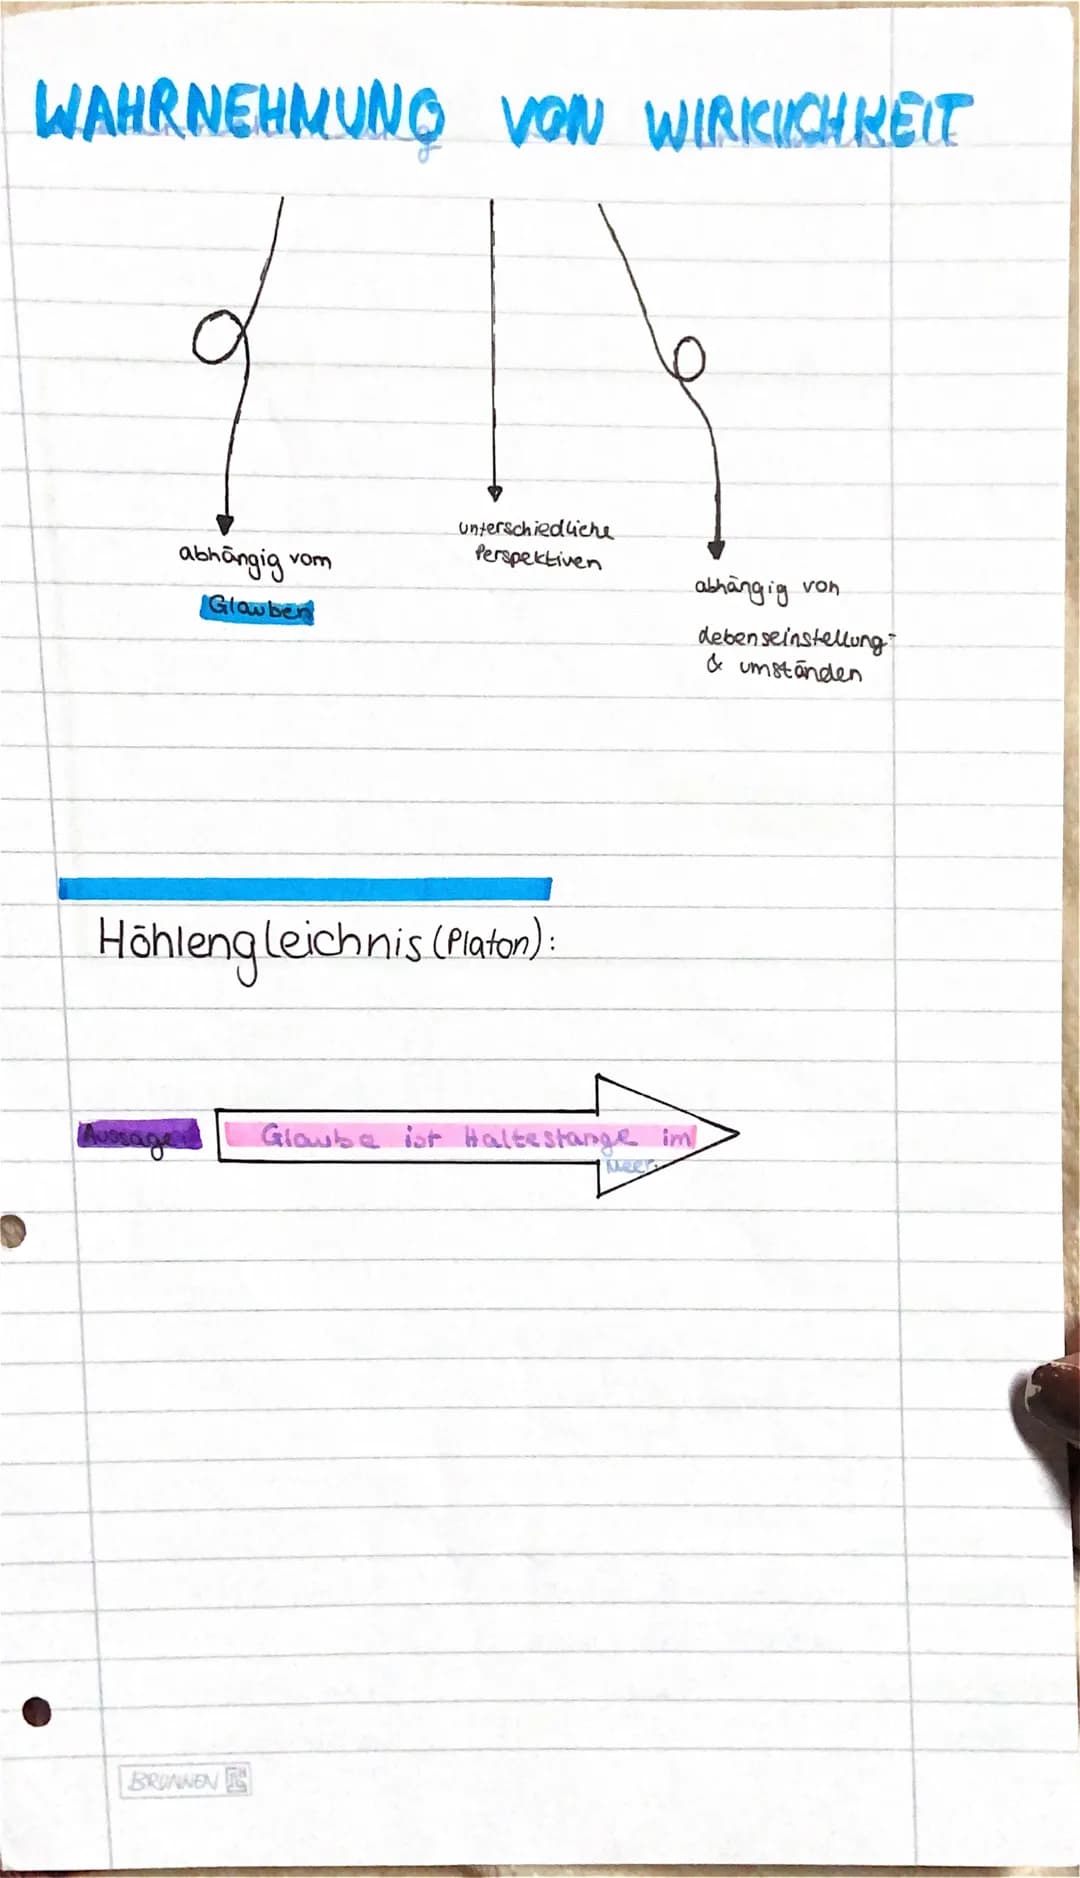 WAHRNEHMUNG VON WIRKLICHKEIT
abhängig vom
Glauben
unterschiedliche
Perspektiven
abhängig von
Lebenseinstellung-
& umständen
Höhlengleichnis (Platon):
Aussage:
Glaube ist Haltestange im
Meer.
BRUNNEN